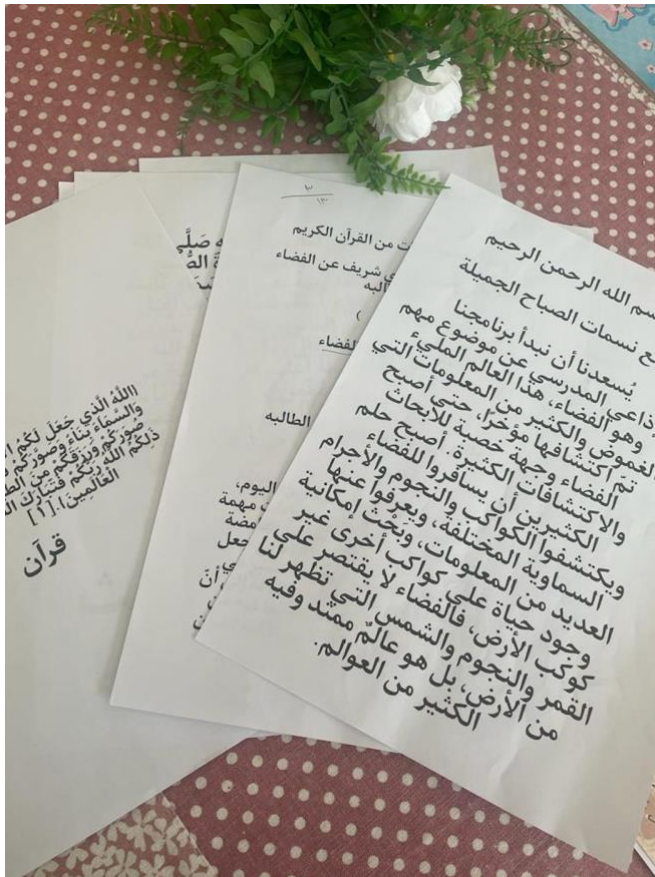 بسم الله الرحمن الرحيم
مع نسمات الصباح الجميلة
يُسعدنا أن نبدأ برنامجنا
الإذاعي المدرسي عن موضوع مهم
وهو الفضاء، هذا العالم المليء
بالغموض والكثير من المعلومات التي
تمّ اكتشافها مؤخرًا، حتى أصبح
الفضاء وجهة خصبة للأبحاث
والاكتشافات الكثيرة. أصبح حلم
الكثيرين أن يسافروا للفضاء
ويكتشفوا الكواكب والنجوم والأجرام
السماوية المختلفة، ويعرفوا عنها
العديد من المعلومات، وبَحْث إمكانية
وجود حياة على كواكب أخرى غير
كوكب الأرض، فالفضاء لا يقتصر على
القمر والنجوم والشمس التي تظهر لنا
من الأرض، بل هو عالمٌ ممتد وفيه
الكثير من العوالم.
من القرآن الكريم
شريف عن الفضاء
الفضاء
الطالبه
اليوم،
مهمة
جعل
أنّ
صَلَّى
{اللَّهُ الَّذِي جَعَلَ لَكُمُ
وَالسَّمَاءَ بِنَاءً وَصَوَّرَكُمْ
صُوَرَكُمْ وَرَزَقَكُم مِّنَ
ذَلِكُمُ اللَّهُ رَبُّكُمْ فَتَبَارَكَ
الْعَالَمِينَ}.[١]
قرآن